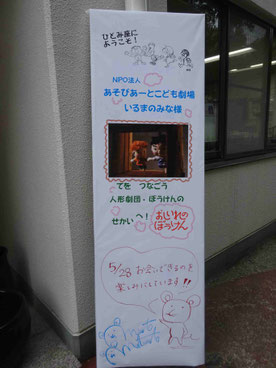 ひとみ座に
ようこそ!
NPO法人
あそびあーとこども劇場
いるまのみな様
てを つなごう
人形劇団・ぼうけんの
せかいへ!
おしいれの
ぼうけん
5/28 お会いできるのを
楽しみにしています!!